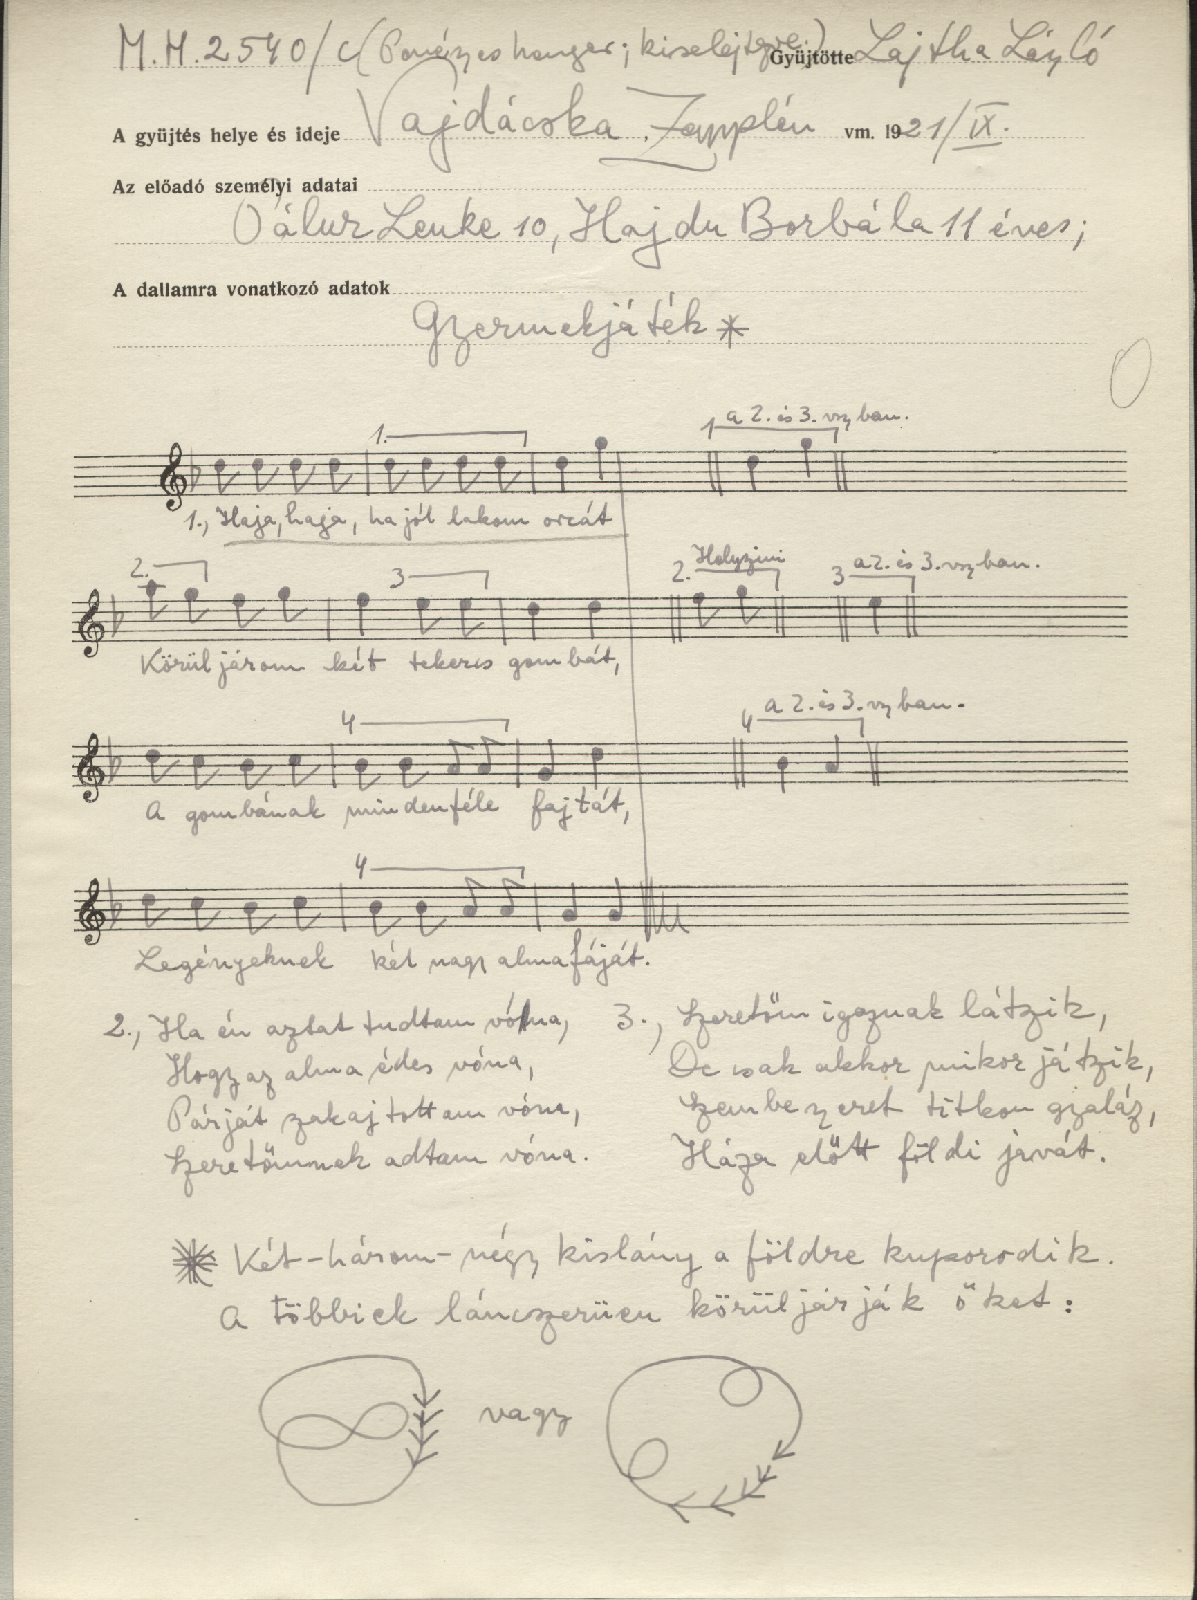 M.H. 2540/c (Penészes henger; kiselejtezve.) Gyüjtötte Lajtha László
A gyüjtés helye és ideje Vajdácska, Zemplén vm. 1921/IX.
Az előadó személyi adatai
Lenke 10, Hajdu Borbála 11 éves;
A dallamra vonatkozó adatok
Gyermekjáték *
1. 1 a 2. és 3. vsz ban.
1., Haja, haja, ha jól lakom orcát
2. 3 2. Helyszini 3 a 2. és 3. vsz ban.
Körüljárom két tekercs gombát,
4 4 a 2. és 3. vsz ban.
A gombának mindenféle fajtát,
4
Legényeknek két nagy almafáját.
2., Ha én aztat tudtam vóna,
Hogy az alma édes vóna,
Párját szakajtottam vóna,
Szeretőmnek adtam vóna.
3., Szeretőm igaznak látzik,
De csak akkor mikor játzik,
Szembe szeret titkon gyaláz,
Háza előtt földi javát.
* Két-három-négy kislány a földre kuporodik.
A többiek láncszerüen körüljárják őket:
vagy